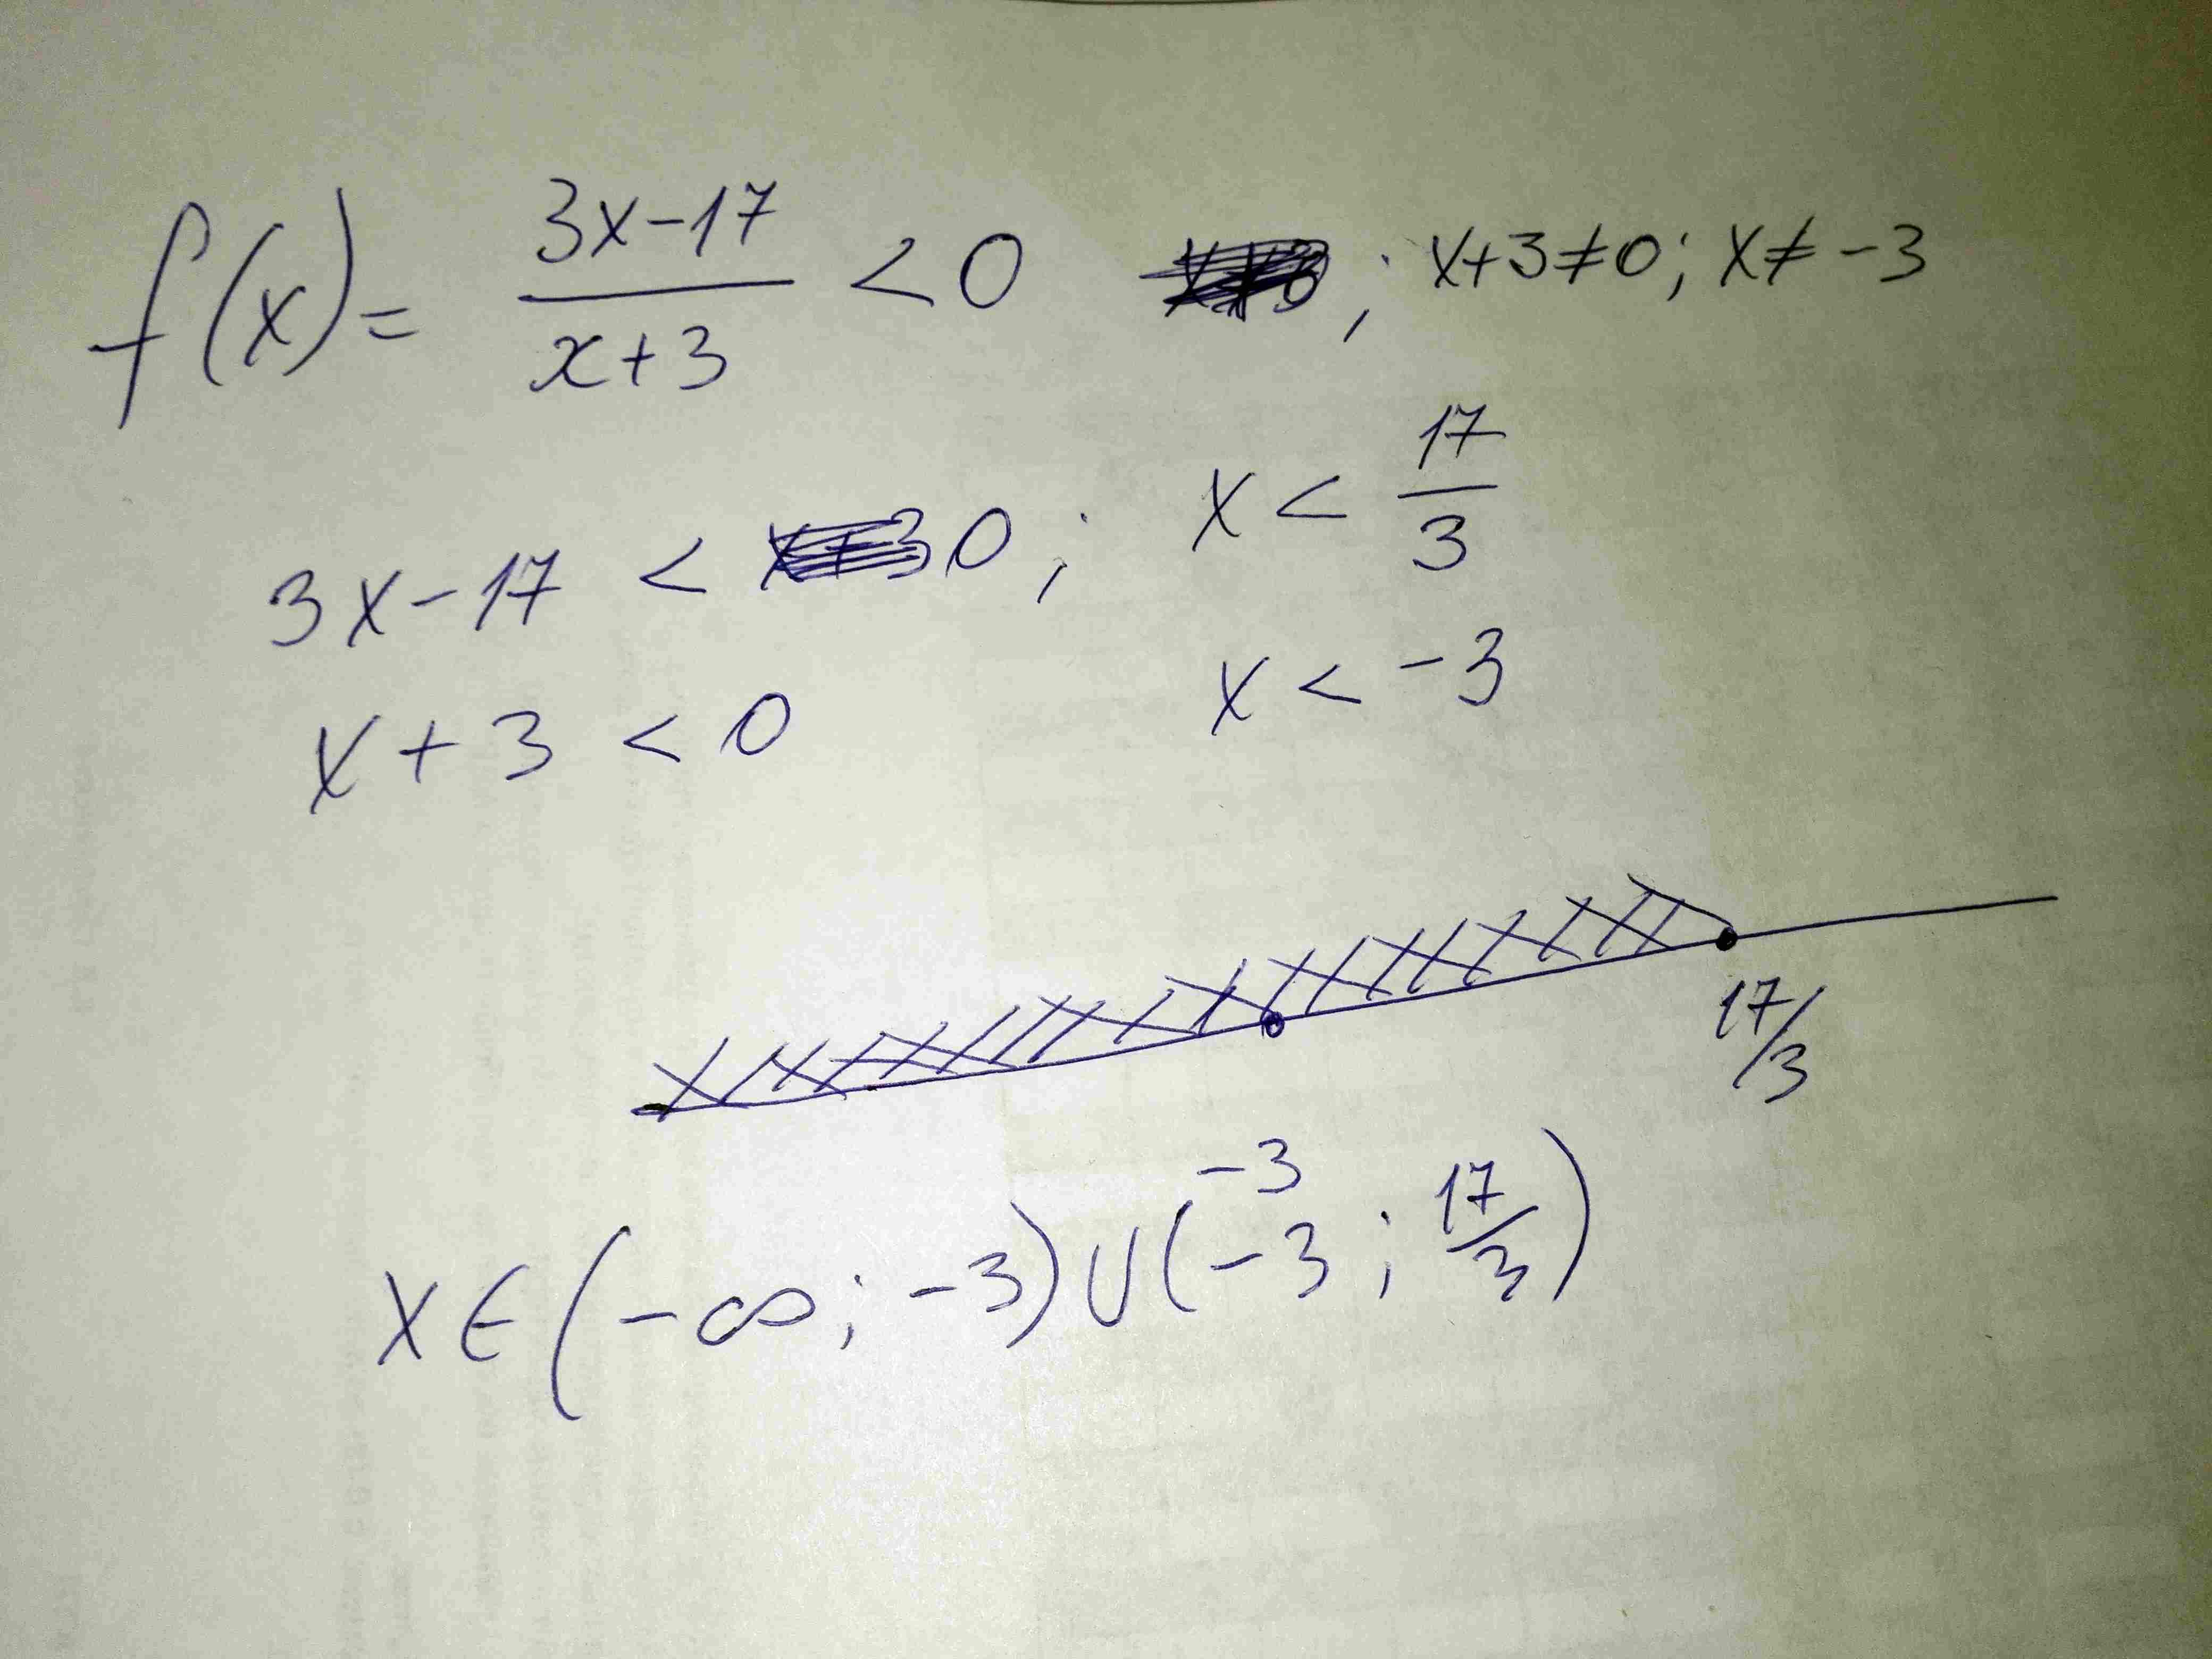 f(x) = 3x-17 / x+3 < 0 ; x+3≠0; x≠ -3
3x-17 < 0 ; x < 17/3
x+3 < 0 x < -3
17/3
-3
x∈(-∞; -3)∪(-3; 17/3)